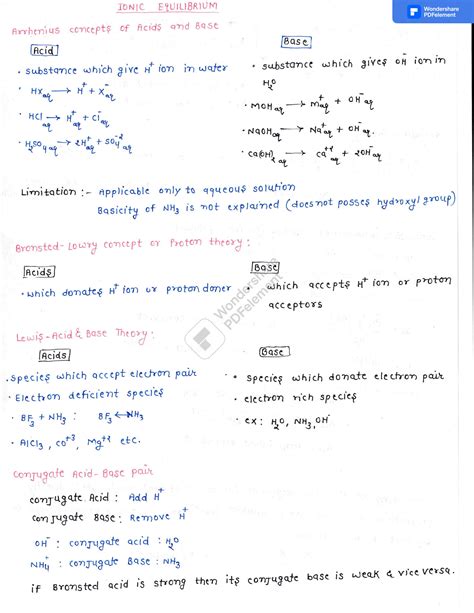 IONIC EQUILIBRIUM
Wondershare
PDFelement
Arrhenius concepts of Acids and Base
Acid
Base
• substance which give H⁺ ion in water
• substance which gives OH⁻ ion in
H₂O
• HXaq → H⁺aq + X⁻aq
• MOHaq → M⁺aq + OH⁻aq
• HClaq → H⁺aq + Cl⁻aq
• NaOHaq → Na⁺aq + OH⁻aq.
• H₂SO₄aq → 2H⁺aq + SO₄⁻²aq
• Ca(OH)₂aq → Ca⁺²aq + 2OH⁻aq
Limitation :- Applicable only to aqueous solution
Basicity of NH₃ is not explained (does not posses hydroxyl group)
Bronsted-Lowry concept or Proton theory:
Acids
Base
• which donates H⁺ ion or proton doner
• which accepts H⁺ ion or proton
acceptors
Wondershare
PDFelement
Lewis-Acid & Base Theory:
Acids
Base
• species which accept electron pair
• species which donate electron pair
• Electron deficient species
• electron rich species
• BF₃ + NH₃ : BF₃ ← NH₃
• ex: H₂O, NH₃, OH⁻
• AlCl₃, Co⁺³, Mg⁺² etc.
Conjugate Acid-Base pair
Conjugate Acid : Add H⁺
Conjugate Base : Remove H⁺
OH⁻ : conjugate acid : H₂O
NH₄⁺ : conjugate Base : NH₃
if Bronsted acid is strong then its conjugate base is weak & vice versa.